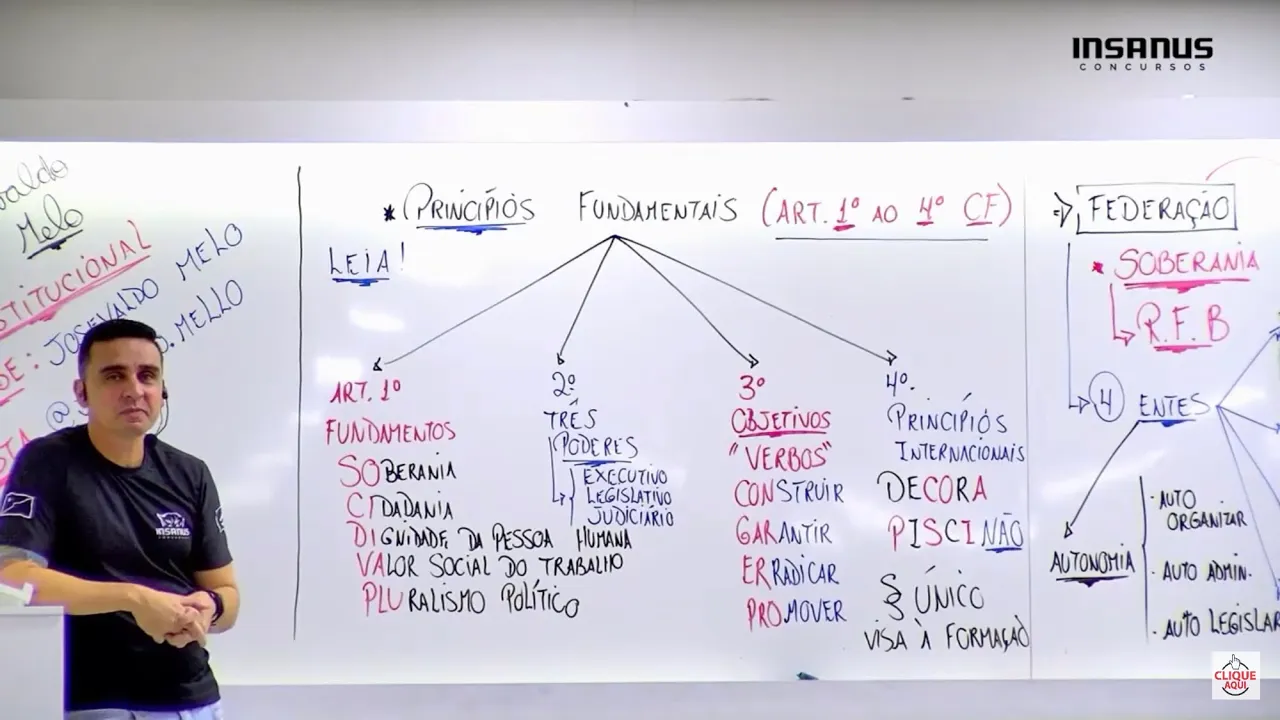 INSANUS
CONCURSOS
Melo
STITUCIONAL
DE: JOSEVALDO MELO
O.MELLO
* PRINCÍPIOS FUNDAMENTAIS (ART. 1º AO 4º CF)
LEIA!
ART. 1º
FUNDAMENTOS
SOBERANIA
CIDADANIA
DIGNIDADE DA PESSOA HUMANA
VALOR SOCIAL DO TRABALHO
PLURALISMO POLÍTICO
2º
TRÊS
PODERES
EXECUTIVO
LEGISLATIVO
JUDICIÁRIO
3º
OBJETIVOS
"VERBOS"
CONSTRUIR
GARANTIR
ERRADICAR
PROMOVER
4º.
PRINCÍPIOS
INTERNACIONAIS
DECORA
PISCINÃO
§ ÚNICO
VISA À FORMAÇÃO
FEDERAÇÃO
* SOBERANIA
R.F.B
4 ENTES
AUTONOMIA
· AUTO
ORGANIZAR
· AUTO ADMIN.
· AUTO LEGISLAR
INSANUS
CLIQUE
AQUI